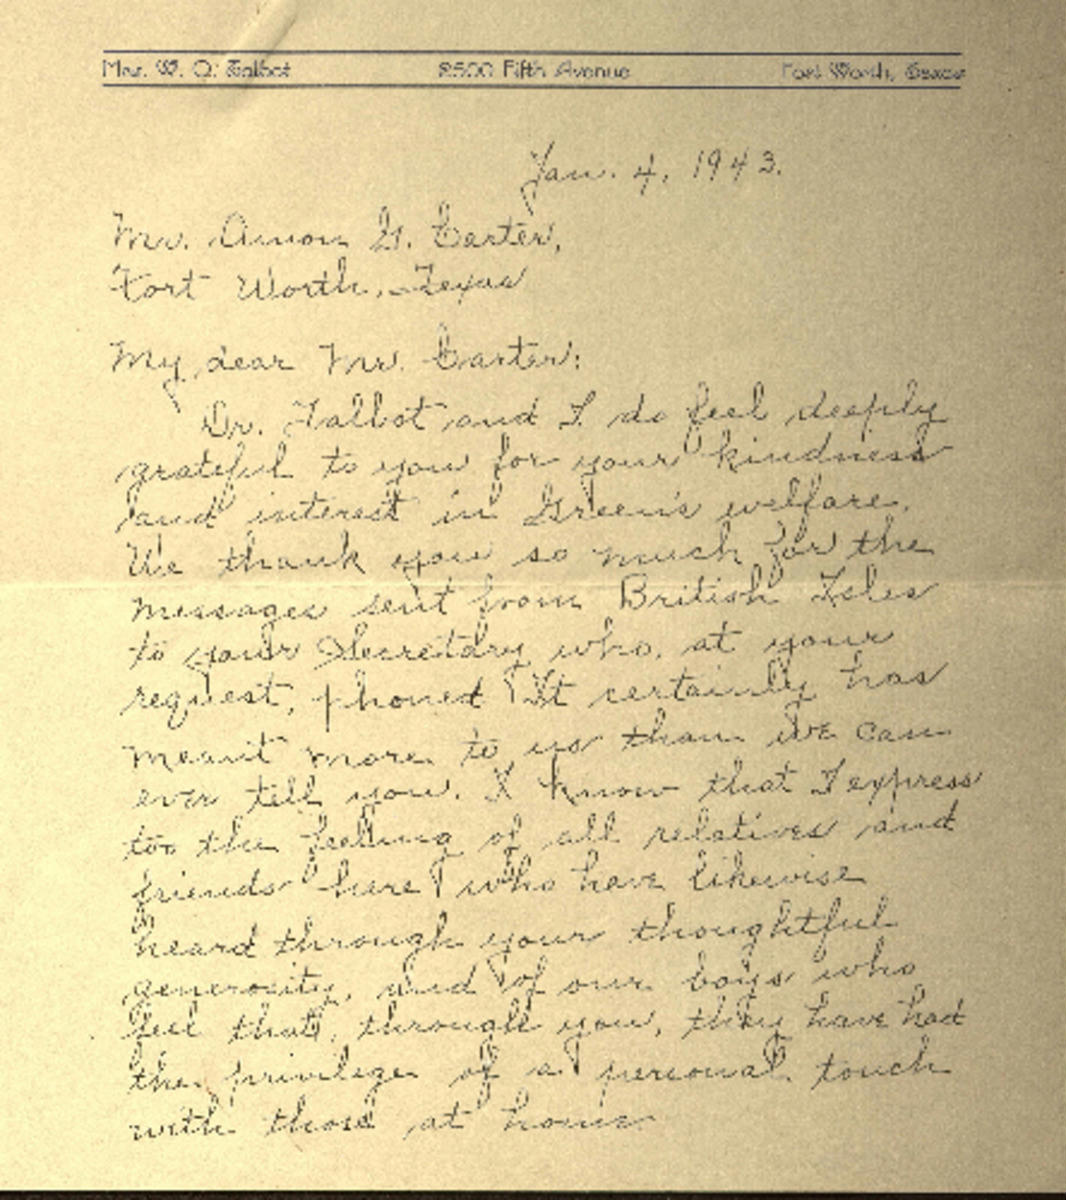 Mrs. W. O. Talbot 2500 Fifth Avenue Fort Worth, Texas
Jan. 4, 1943.
Mr. Amon G. Carter,
Fort Worth, Texas
My dear Mr. Carter:
Dr. Talbot and I do feel deeply
grateful to you for your kindness
and interest in Green's welfare.
We thank you so much for the
messages sent from British Isles
to your Secretary who, at your
request, phoned. It certainly has
meant more to us than we can
ever tell you. I know that I express
too the feeling of all relatives and
friends here who have likewise
heard through your thoughtful
generosity, and of our boys who
feel that, through you, they have had
the privilege of a personal touch
with those at home